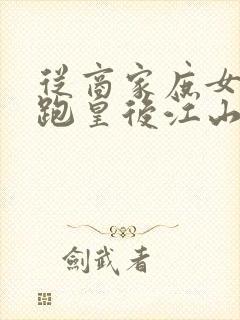 從商家庶女
跑皇後江山
劍武者